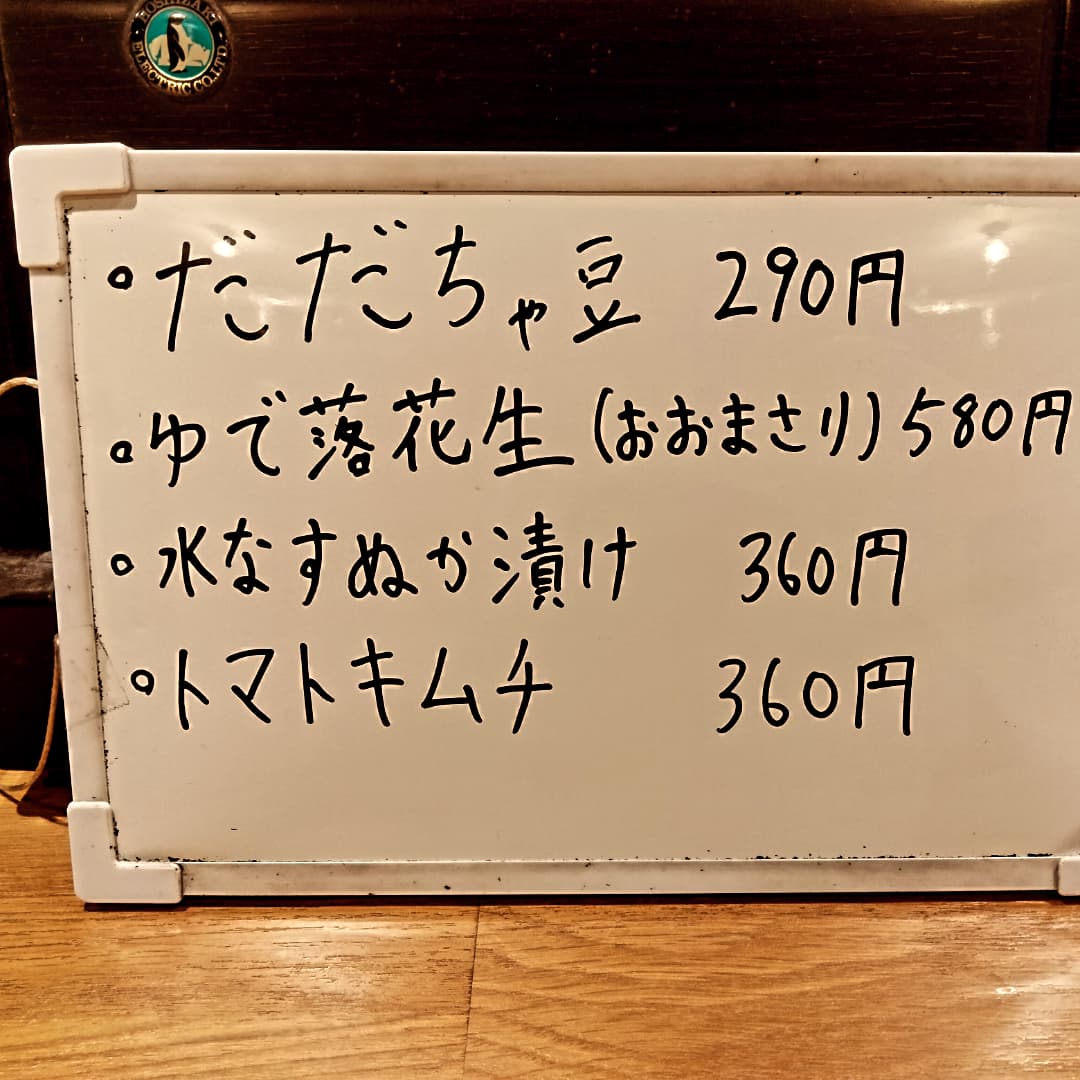 HOSHIZAKI
ELECTRIC CO.,LTD.
。だだちゃ豆 290円
。ゆで落花生(おおまさり)580円
。水なすぬか漬け 360円
。トマトキムチ 360円